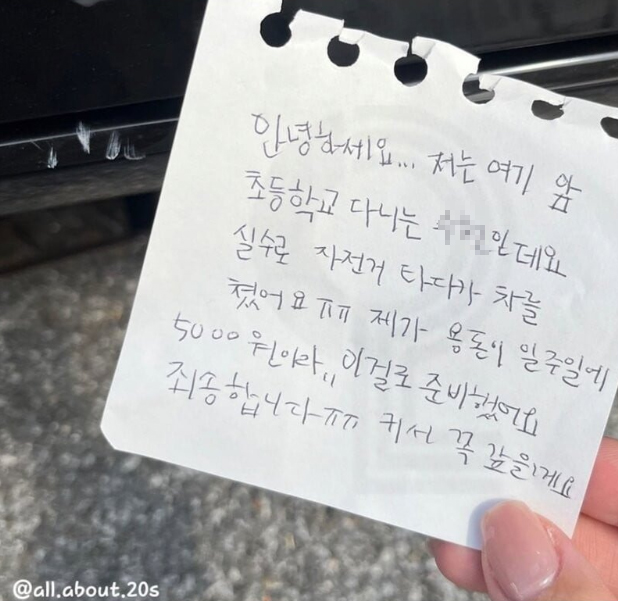 안녕하세요... 저는 여기 앞
초등학교 다니는 인데요
실수로 자전거 타다가 차를
쳤어요ㅠㅠ 제가 용돈이 일주일에
5000원이라,, 이걸로 준비했어요
죄송합니다ㅠㅠ 커서 꼭 갚을게요
@all.about.20s